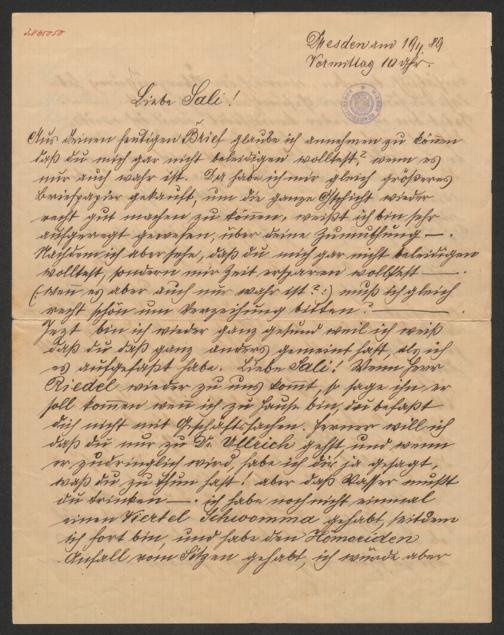 Dresden am 19/4 89
Vormittag 10 Uhr.
Liebe Sali!
Aus deinen heutigen Brief glaube ich annehmen zu könen
daß du mich gar nicht beleidigen wolltest? wenn es
nur auch wahr ist. Da habe ich mir gleich größeres
Briefpapier gekauft, um die ganze Gschicht wieder
recht gut machen zu könen, weißt ich bin sehr
aufgeregt gewesen, über deine Zumuthung —.
Nachdem ich aber sehe, daß du mich gar nicht beleidigen
wolltest, sondern mir Zeit ersparen wolltest —.
(: wen es aber auch nur wahr ist? :) muß ich gleich
recht schön um Verzeihung bitten! —.
Jezt bin ich wieder ganz gesund weil ich weiß
daß du daß ganz anders gemeint hast, als ich
es aufgefaßt habe. Liebe Sali! Wenn Herr
Riedel wieder zu uns komt, so sage ihn, er
soll komen wen ich zu Hause bin, du befaßt
dich nicht mit Geschäftssachen. Ferner will ich
daß du nur zu Dr. Ullrich gehst, und wenn
er zudringlich wird, habe ich dir ja gesagt,
waß du zu thun hast! aber daß Wasser mußt
du trinken —. ich habe noch nicht einmal
einen Viertel Schwomma gehabt, seitdem
ich fort bin, und habe den Hämoriden
Anfall, vom Sitzen gehabt, ich würde aber